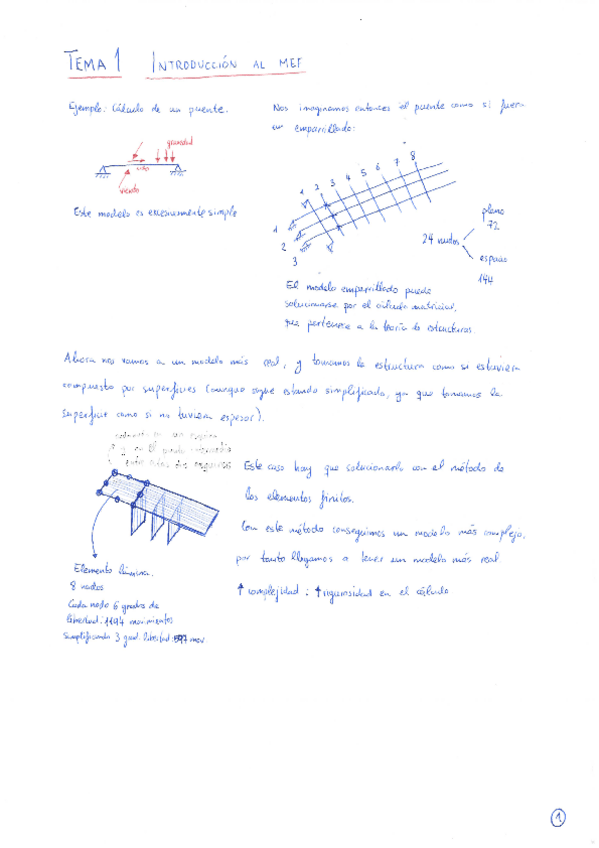 TEMA 1 INTRODUCCIÓN AL MEF
Ejemplo: Cálculo de un puente.
gravedad
viento
Este modelo es enormemente simple
Nos imaginamos entonces el puente como si fuera
un emparrillado:
1 2 3 4 5 6 7 8
1
2
3
24 nudos
plano
72
espacio
144
El modelo emparrillado puede
solucionarse por el cálculo matricial,
que pertenece a la teoría de estructuras.
Ahora nos vamos a un modelo más real, y tomamos la estructura como si estuviera
compuesta por superficies (aunque sigue estando simplificada, ya que tomamos la
superficie como si no tuviera espesor).
Este caso hay que solucionarlo con el método de
los elementos finitos.
Con este método conseguimos un modelo más complejo,
por tanto llegamos a tener un modelo más real
↑ complejidad : ↑ rigurosidad en el cálculo
Elemento lámina.
8 nodos
Cada nodo 6 grados de
libertad: 1194 movimientos
Simplificando 3 grad. libertad: 597 mov
1